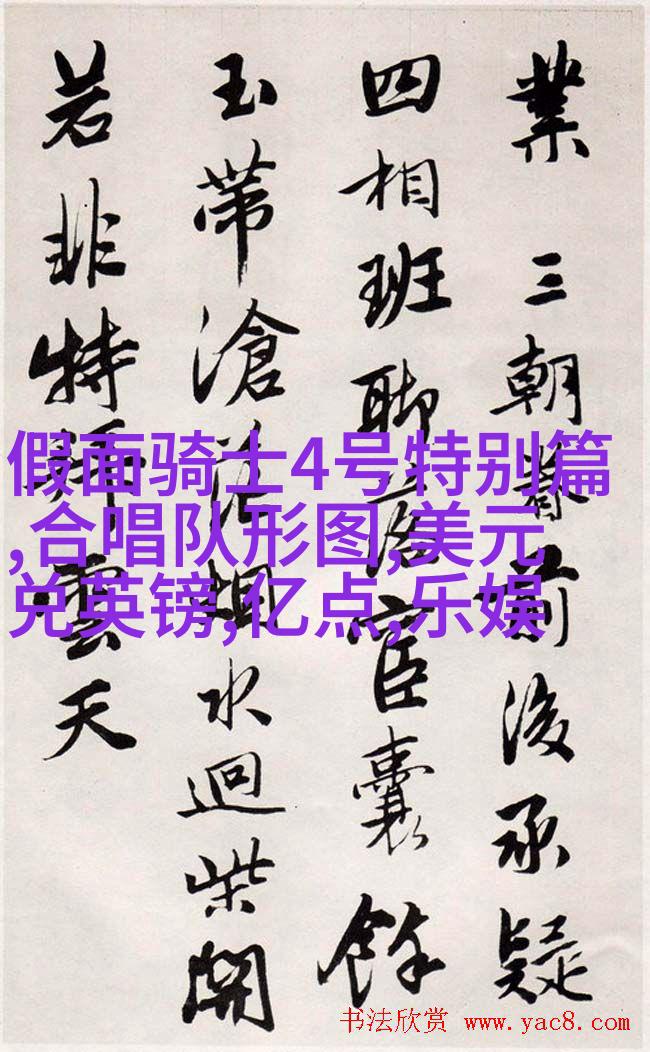 業 三朝前後承疑
四相班聊宦囊餘
玉帶滄茫烟水迴柴開
若非特雲天
假面骑士4号特别篇
,合唱队形图,美元
兑英镑,亿点,乐娱
书法欣赏 www.yac8.com